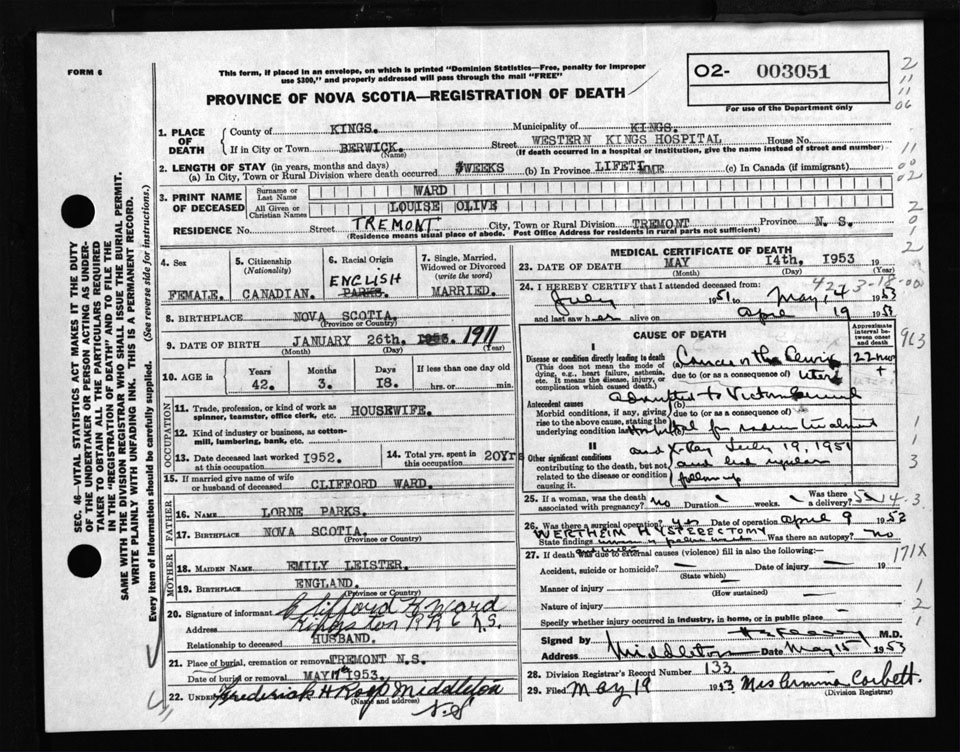 FORM 6
This form, if placed in an envelope, on which is printed "Dominion Statistics—Free, penalty for improper
use $300," and properly addressed will pass through the mail "FREE"
PROVINCE OF NOVA SCOTIA—REGISTRATION OF DEATH
O2- 003051
For use of the Department only
1. PLACE OF DEATH
County of KINGS. Municipality of KINGS.
If in City or Town BERWICK. (Name) Street WESTERN KINGS HOSPITAL House No.
(If death occurred in a hospital or institution, give the name instead of street and number)
2. LENGTH OF STAY (in years, months and days)
(a) In City, Town or Rural Division where death occurred 3WEEKS (b) In Province LIFETIME (c) In Canada (if immigrant)
3. PRINT NAME OF DECEASED
Surname or Last Name WARD
All Given or Christian Names LOUISE OLIVE
RESIDENCE No. Street TREMONT City, Town or Rural Division TREMONT Province N. S.
(Residence means usual place of abode. Post Office Address for residents in rural parts not sufficient)
4. Sex
FEMALE.
5. Citizenship (Nationality)
CANADIAN.
6. Racial Origin
ENGLISH
PARKS.
7. Single, Married, Widowed or Divorced (write the word)
MARRIED.
8. BIRTHPLACE NOVA SCOTIA.
(Province or Country)
9. DATE OF BIRTH JANUARY 26th. 1953. 1911
(Month) (Day) (Year)
10. AGE in Years Months Days If less than one day old
42. 3. 18. hrs. or min.
OCCUPATION
11. Trade, profession, or kind of work as spinner, teamster, office clerk, etc. HOUSEWIFE.
12. Kind of industry or business, as cotton-mill, lumbering, bank, etc.
13. Date deceased last worked at this occupation 1952.
14. Total yrs. spent in this occupation 20Yrs
15. If married give name of wife or husband of deceased CLIFFORD WARD.
FATHER
16. NAME LORNE PARKS.
17. BIRTHPLACE NOVA SCOTIA.
(Province or Country)
MOTHER
18. MAIDEN NAME EMILY LEISTER.
19. BIRTHPLACE ENGLAND.
(Province or Country)
20. Signature of informant Clifford R Ward
Address Kingston RR 6 N.S.
Relationship to deceased HUSBAND.
21. Place of burial, cremation or removal TREMONT N.S.
Date of burial or removal MAY 17th 1953.
22. Undertaker Frederick H Roop Middleton
(Name and address)
N.S
MEDICAL CERTIFICATE OF DEATH
23. DATE OF DEATH MAY 14th, 1953 19
(Month) (Day) (Year)
24. I HEREBY CERTIFY that I attended deceased from:
423-18-001
July 1951 to May 14 1953
and last saw her alive on April 19 1953
CAUSE OF DEATH
Approximate interval between onset and death
I
Disease or condition directly leading to death
(This does not mean the mode of dying, e.g., heart failure, asthma, etc. It means the disease, injury, or complication which caused death.)
(a) Cancer of the Cervix
due to (or as a consequence of) Uteri
22 mos
+
Antecedent causes
Morbid conditions, if any, giving rise to the above cause, stating the underlying condition last
Admitted to Victoria General
(b)
due to (or as a consequence of)
Hospital for radium treatment
(c)
II
Other significant conditions
contributing to the death, but not related to the disease or condition causing it.
and X-Ray July 19, 1951
and had regular
follow up
25. If a woman, was the death associated with pregnancy? no Duration weeks. Was there a delivery?
26. Was there surgical operation? yes Date of operation April 9 1952
WERTHEIM HYSTERECTOMY
State findings Was there an autopsy? no
27. If death was due to external causes (violence) fill in also the following:—
Accident, suicide or homicide? Date of injury 19
(State which)
Manner of injury
(How sustained)
Nature of injury
Specify whether injury occurred in industry, in home, or in public place
Signed by M.D.
Address Middleton Date May 15 1953
28. Division Registrar's Record Number 133
29. Filed May 19 1953 Mrs Ermina Corbett.
(Division Registrar)
SEC. 46—VITAL STATISTICS ACT MAKES IT THE DUTY
OF THE UNDERTAKER OR PERSON ACTING AS UNDER-
TAKER TO OBTAIN ALL THE PARTICULARS REQUIRED
IN THE "REGISTRATION OF DEATH" AND TO FILE THE
SAME WITH THE DIVISION REGISTRAR WHO SHALL ISSUE THE BURIAL PERMIT.
WRITE PLAINLY WITH UNFADING INK. THIS IS A PERMANENT RECORD.
Every item of information should be carefully supplied. (See reverse side for instructions.)
2
11
11
06
11
00
02
2
0
1
2
913
1
1
3
3
171X
1
2
1